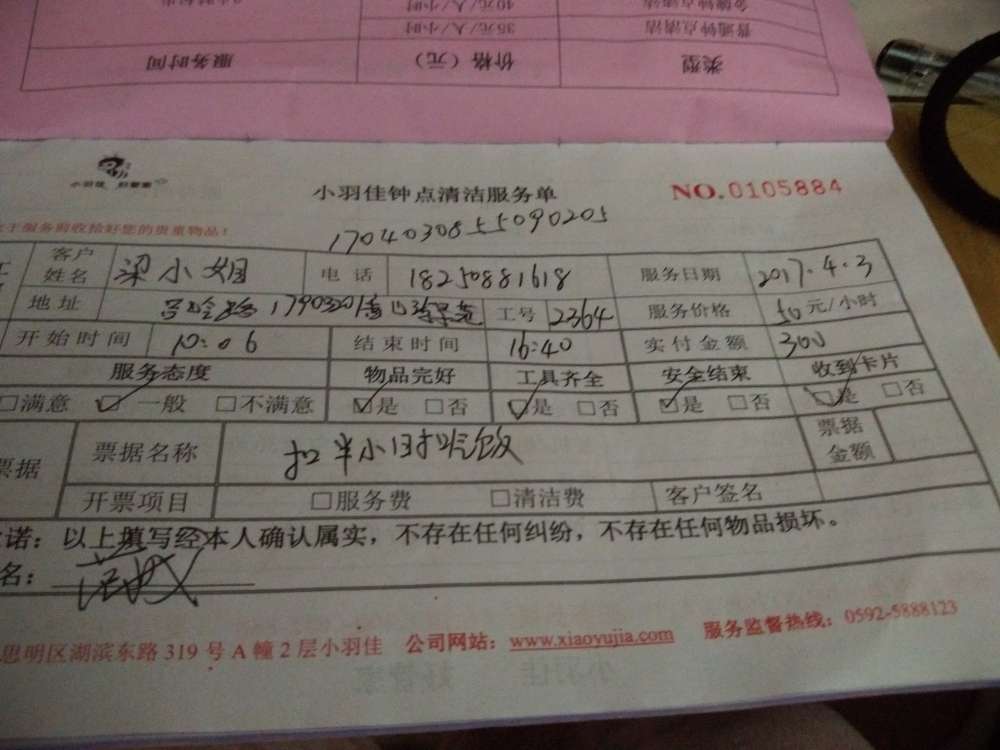 金牌钟点清洁 40元/人/小时
普通钟点清洁 35元/人/小时
类型 价格（元） 服务时间
小羽佳 好管家
小羽佳钟点清洁服务单 NO.0105884
于服务前收拾好您的贵重物品！
17040308555090205
客户姓名 梁小姐 电话 18250881618 服务日期 2017.4.3
地址 工号 2364 服务价格 元/小时
开始时间 10:06 结束时间 16:40 实付金额 300
服务态度 物品完好 工具齐全 安全结束 收到卡片
□满意 ☑一般 □不满意 ☑是 □否 ☑是 □否 ☑是 □否 ☑是 □否
票据 票据名称 扣半小时吃饭 票据金额
开票项目 □服务费 □清洁费 客户签名
诺：以上填写经本人确认属实，不存在任何纠纷，不存在任何物品损坏。
名：
思明区湖滨东路319号A幢2层小羽佳 公司网站：www.xiaoyujia.com 服务监督热线：0592-5888123